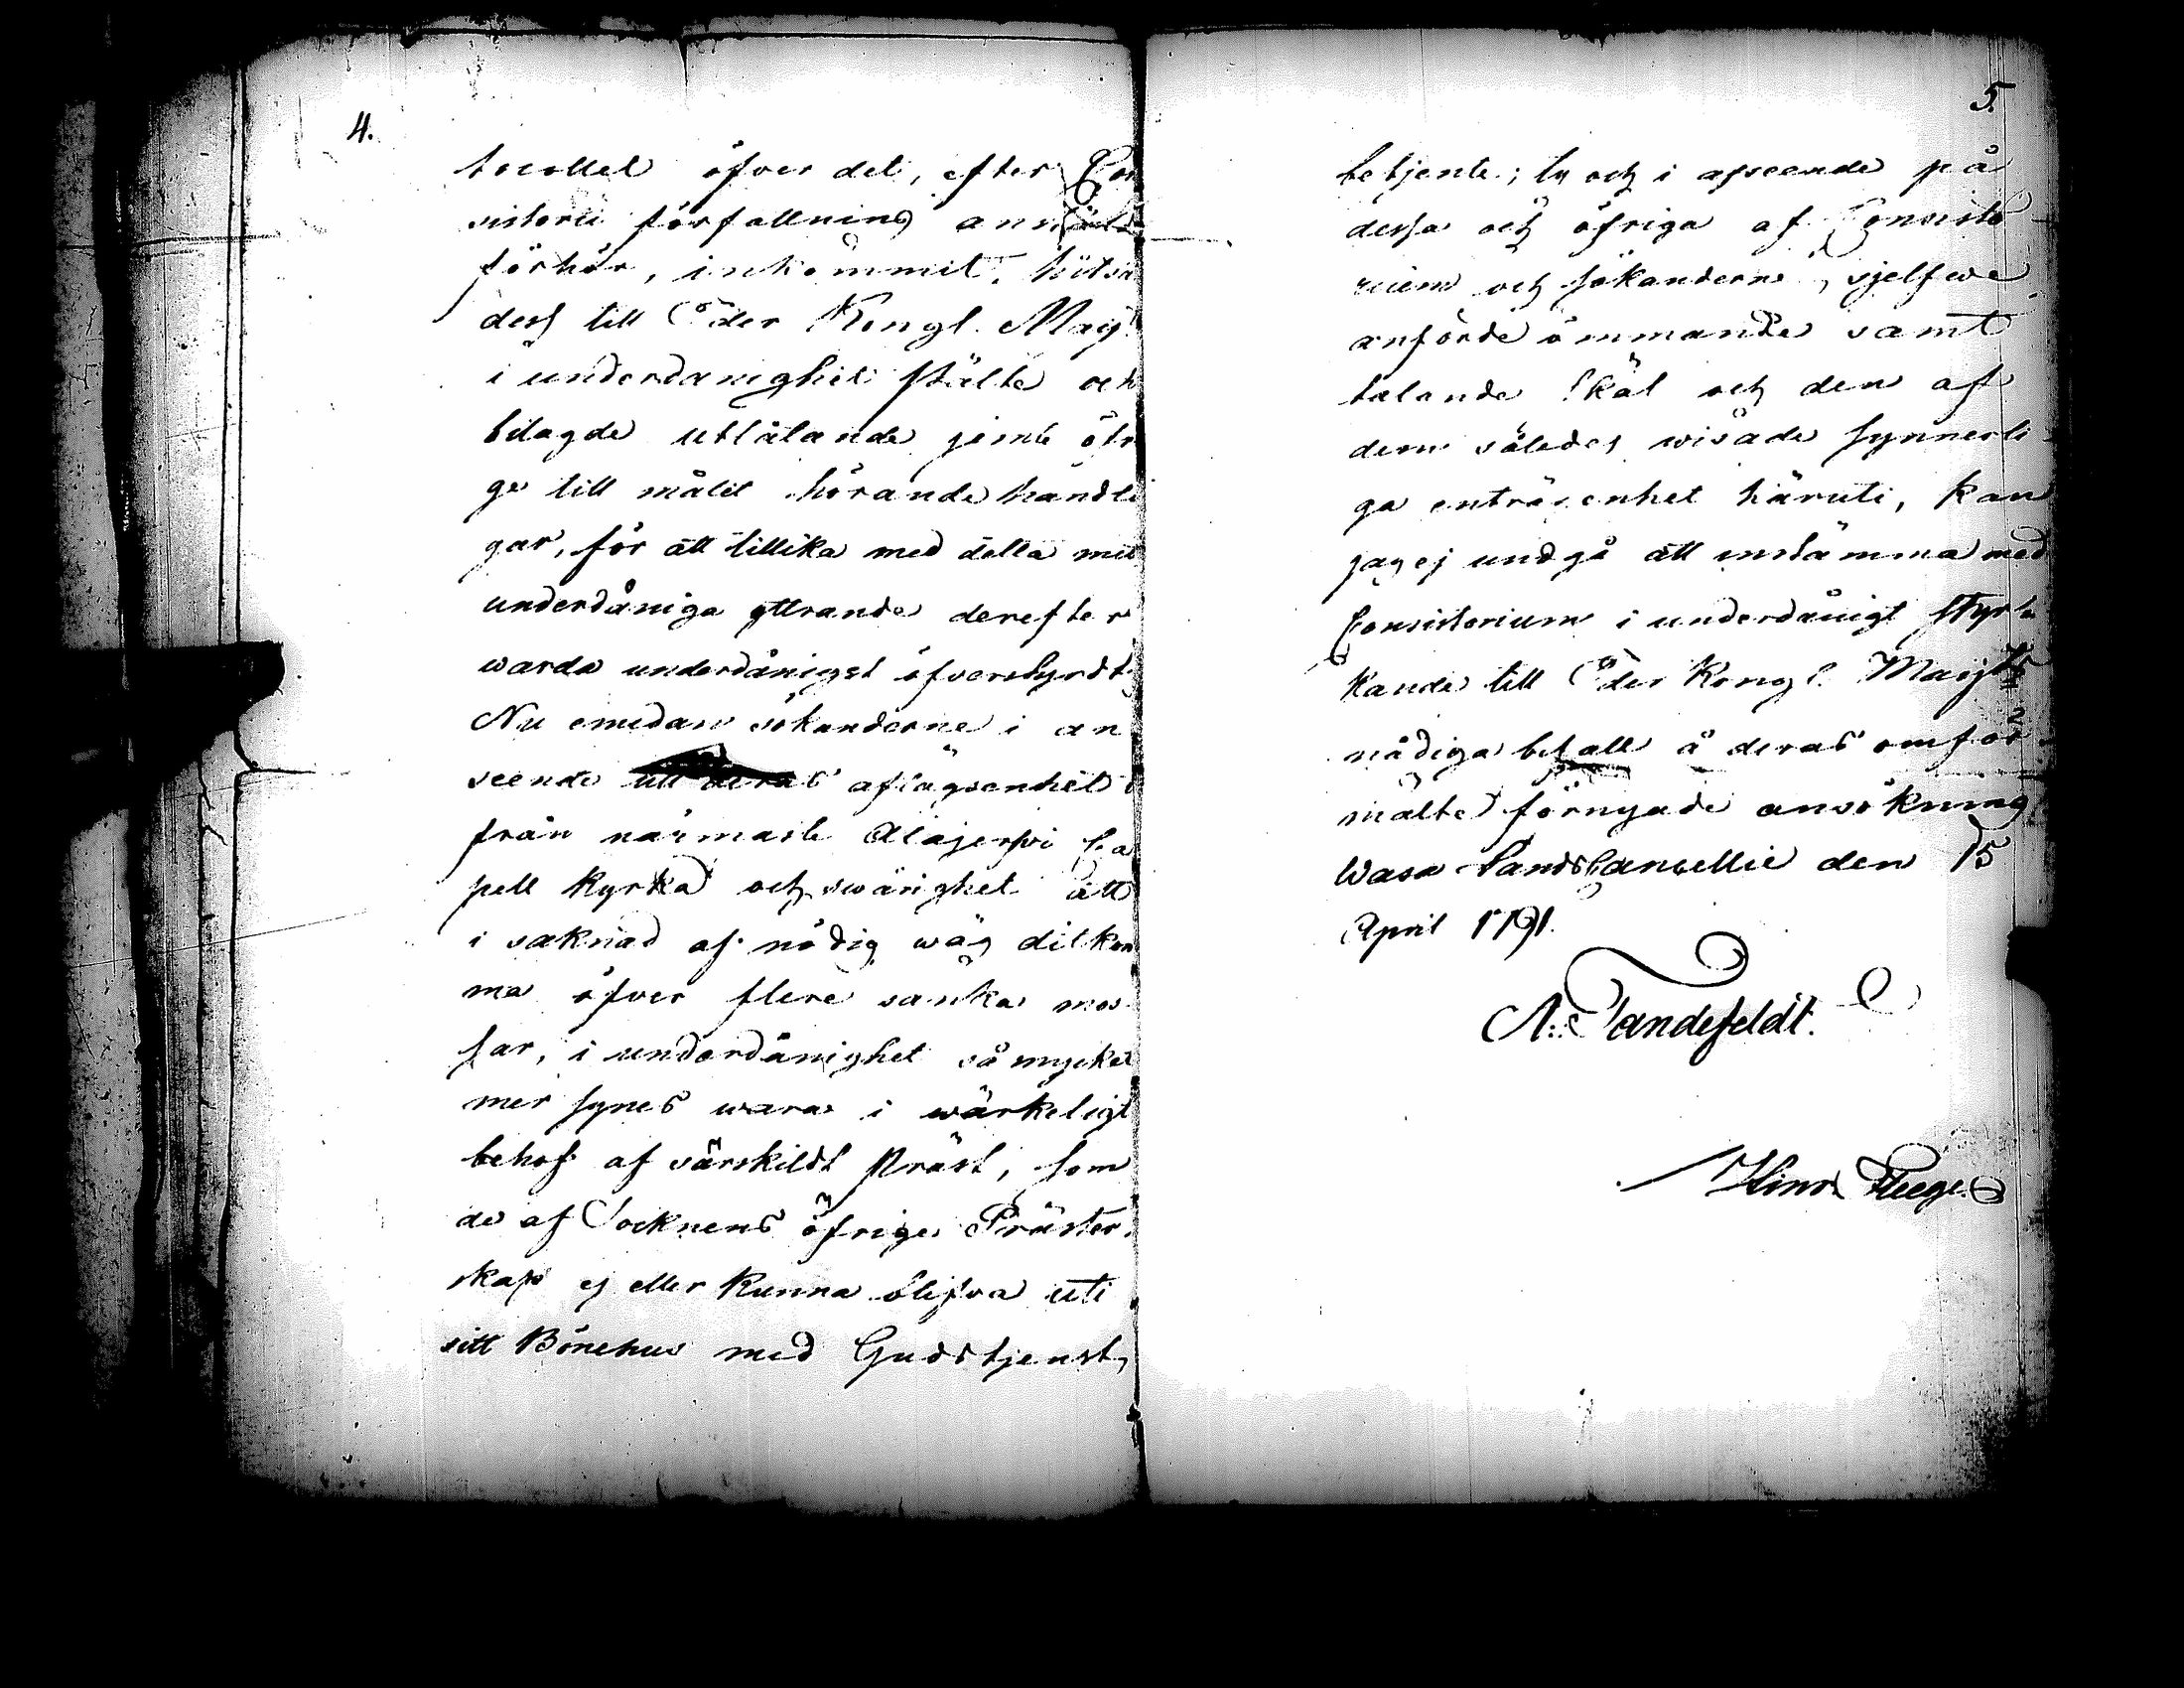 4.
tocollet öfver det, efter Con
sistorii författning anstälda
förhör, inkommit,
dess till Eder Kongl. Maij:t
i underdånighet stälte och
bilagde utlåtande jemte öfri
ga till målet hörande handli
gar, för att tillika med detta mit
underdåniga yttrande derefter
warda underdånigst öfverstyrdt.
Nu emedan sökanderne i an
seende till deras aflägsenhet
från närmaste Alajerfvi Ca
pell kyrka och swårighet att
i saknad af nödig wäg dit kom
ma öfver flere sanka mos
sar, i underdånighet så mycket
mer synes wara i wärkeligt
behof af särskildt Präst, som
de af Socknens öfrige Präster
skap ej eller kunna blifva uti
sitt Bönehus med Gudstjenst,
5.
betjente; ty och i afseende på
dessa och öfriga af Consisto
rium och sökanderne sjelfwe
anförde ömmande samt
talande Skäl och den af
dem således wisade synnerli
ga enträgenhet häruti, kan
jag ej undgå att instämma med
Consistorium i underdånigt styr
kande till Eder Kongl. Maij:ts
nådiga bifall å deras omför
mälte förnyade ansökning
Wasa Landscancellie den 15
April 1791.
A: Tandefeldt.
Hinr.